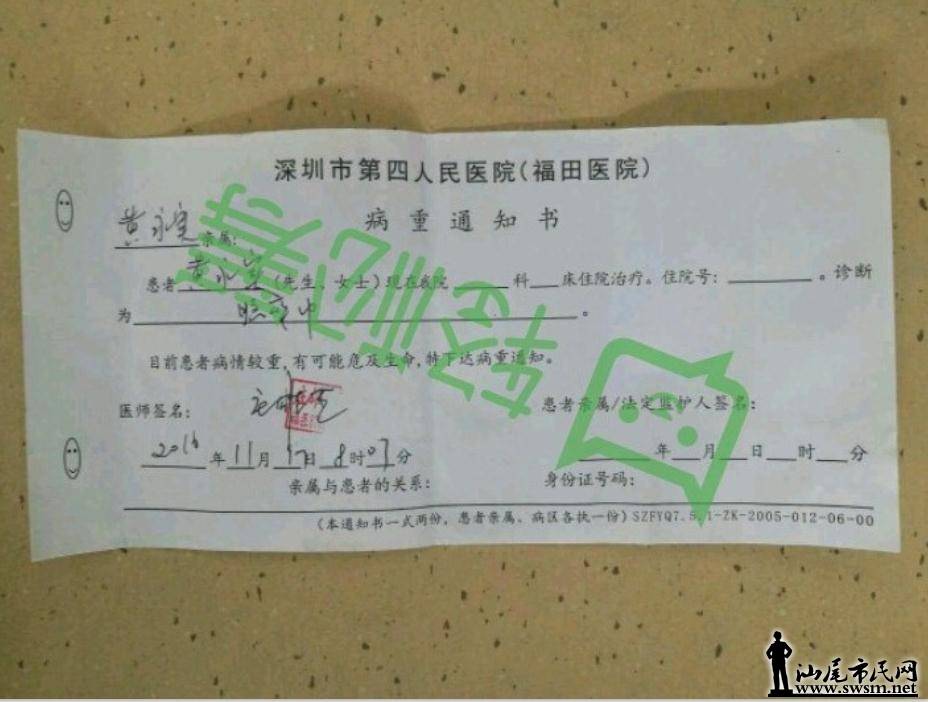 深圳市第四人民医院(福田医院)
病重通知书
黄永宝 亲属:
患者 黄永宝 (先生、女士)现在我院____科__床住院治疗。住院号:______。诊断
为 脑卒中 。
目前患者病情较重,有可能危及生命,特下达病重通知。
医师签名:
患者亲属/法定监护人签名:
2016年11月17日8时07分
____年__月__日__时__分
亲属与患者的关系:
身份证号码:
(本通知书一式两份,患者亲属、病区各执一份)SZFYQ7.5.1-ZK-2005-012-06-00
轻松筹
汕尾市民网
www.swsm.net